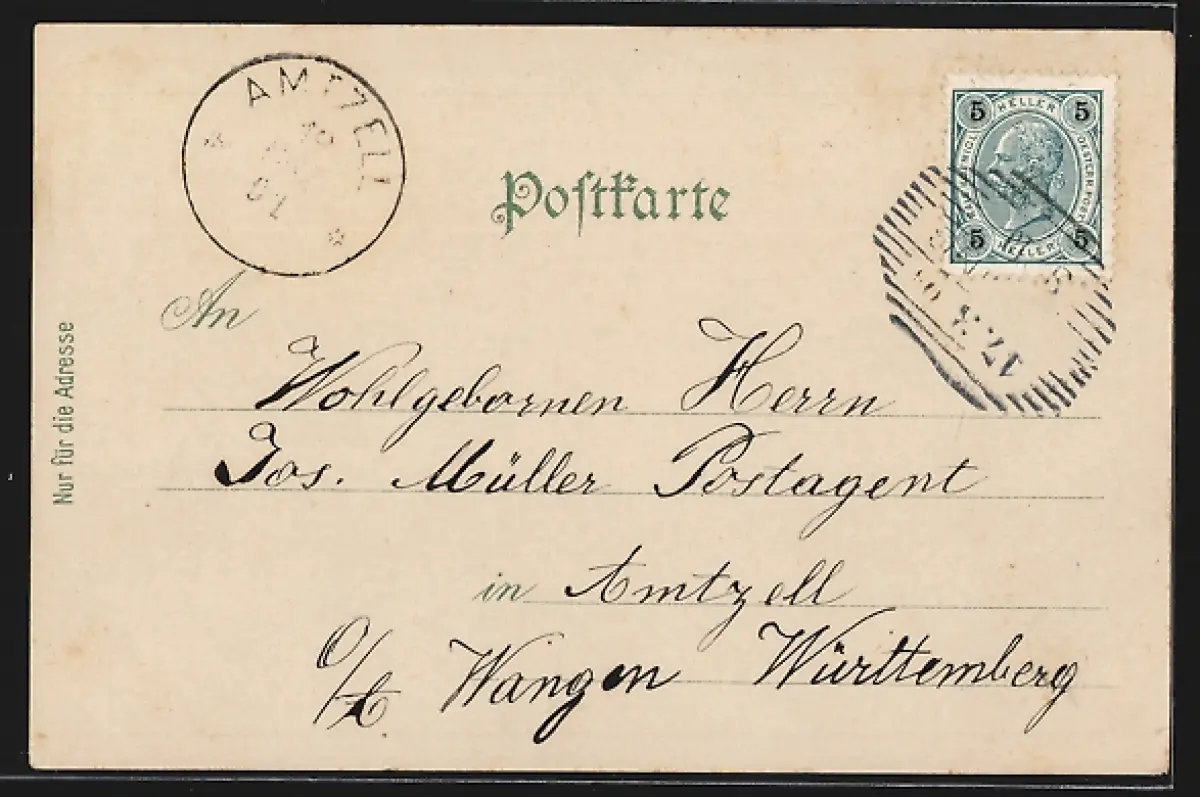 AMTZELL
91
Postkarte
5 HELLER 5
5 HELLER 5
17.3
An
Nur für die Adresse
Wohlgebornen Herrn
Jos. Müller Postagent
in Amtzell
O/A Wangen Württemberg